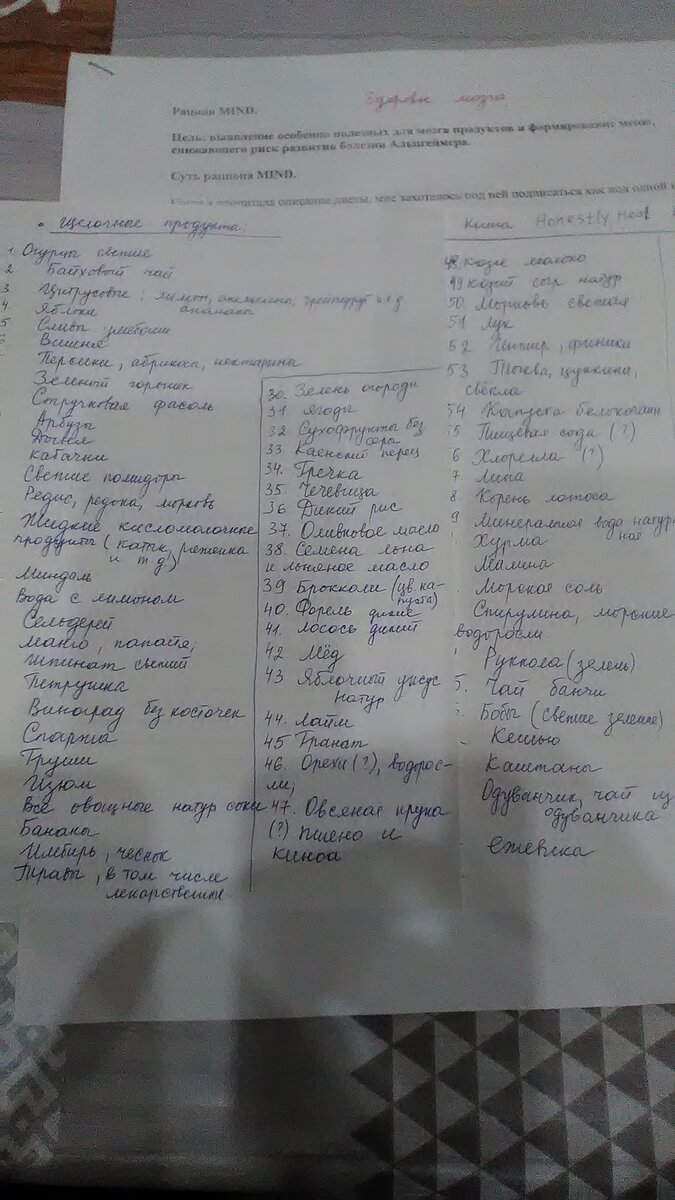 Здоровье мозга
Рацион MIND.
Цель: выявление особенно полезных для мозга продуктов и формирование меню,
снижающего риск развития болезни Альцгеймера.
Суть рациона MIND.
прочитала описание диеты, мне захотелось под ней подписаться как под одной
• Щелочные продукты:
1. Огурцы свежие
2 Байховый чай
3 Цитрусовые: лимон, апельсины, грейпфрут
4. Яблоки ананасы
5 Сливы
Вишня
Персики, абрикосы, нектарины
Зеленый горошек
Стручковая фасоль
Арбузы
Дыня
Кабачки
Свежие помидоры
Редис, редька, морковь
Жидкие кисломолочные
продукты (катык, ряженка
и т.д)
Миндаль
Вода с лимоном
Сельдерей
Манго, папайя;
Шпинат свежий
Петрушка
Виноград без косточек
Спаржа
Груши
Изюм
Все овощные натур соки
Бананы
Имбирь, чеснок
Травы, в том числе
лекарственные
30. Зелень
31 Ягоды
32 Сухофрукты без
серы
33 Каенский перец
34. Гречка
35. Чечевица
36. Дикий рис
37. Оливковое масло
38. Семена льна
и льняное масло
39 Брокколи (цв. ка-
пуста)
40. Форель дикие
41. Лосось дикий
42. Мёд
43 Яблочный уксус
натур
44. Лайм
45 Гранат
46. Орехи (?), водорос-
ли;
47. Овсяная крупа
(?) пшено и
киноа
Книга Honestly Healthy
48. Козье молоко
49 козий сыр натур
50. Морковь свежая
51 Лук
52 Инжир, финики
53 Тыква, цуккини,
свёкла
54 Капуста белокочан
5 Пищевая сода (?)
6 Хлорелла (?)
7 Липа
8 Корень лотоса
9 Минеральная вода натураль
ная
Хурма
Малина
Морская соль
Спирулина, морские
водоросли
Руккола (зелень)
5. Чай банчи
Бобы (свежие зеленые)
Кешью
Каштаны
Одуванчик, чай из
одуванчика
ежевика